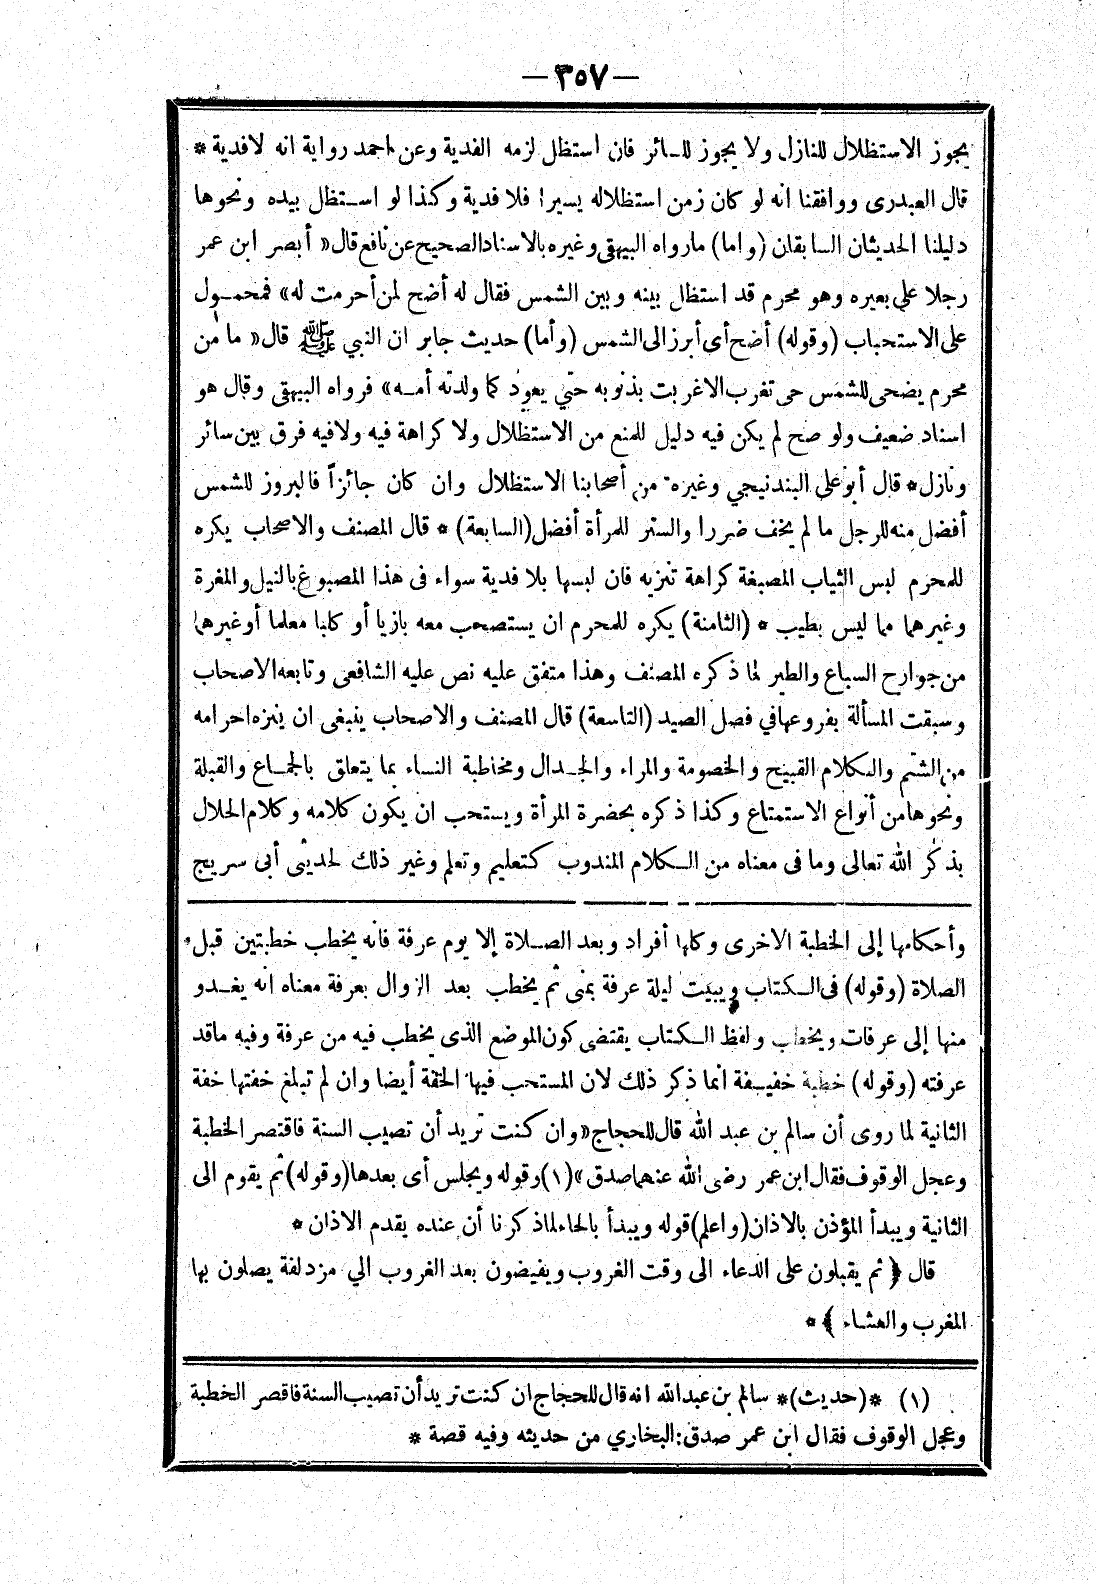 — ٣٥٧ —
يجوز الاستظلال للنازل ولا يجوز للسائر فان استظل لزمه الفدية وعن احمد رواية انه لافدية *
قال العبدرى ووافقنا انه لو كان زمن استظلاله يسيرا فلا فدية وكذا لو استظل بيده ونحوها
دليلنا الحديثان السابقان (واما) مارواه البيهقى وغيره بالاسناد الصحيح عن نافع قال « أبصر ابن عمر
رجلا على بعيره وهو محرم قد استظل بينه وبين الشمس فقال له أضح لمن أحرمت له » فمحمول
على الاستحباب (وقوله) أضح أى أبرز الى الشمس (وأما) حديث جابر ان النبي ﷺ قال « ما من
محرم يضحى للشمس حى تغرب الا غربت بذنوبه حتي يعود كما ولدته أمه » فرواه البيهقى وقال هو
اسناد ضعيف ولو صح لم يكن فيه دليل للمنع من الاستظلال ولا كراهة فيه ولافيه فرق بين سائر
ونازل * قال أبو على البندنيجي وغيره من أصحابنا الاستظلال وان كان جائزاً فالبروز للشمس
أفضل منه للرجل ما لم يخف ضررا والستر للمرأة أفضل (السابعة) * قال المصنف والاصحاب يكره
للمحرم لبس الثياب المصبغة كراهة تنزيه فان لبسها بلا فدية سواء فى هذا المصبوغ بالنيل والمغرة
وغيرهما مما ليس بطيب * (الثامنة) يكره للمحرم ان يستصحب معه بازيا أو كلبا معلما أو غيرهما
من جوارح السباع والطير لما ذكره المصنف وهذا متفق عليه نص عليه الشافعى وتابعه الاصحاب
وسبقت المسألة بفروعها في فصل الصيد (التاسعة) قال المصنف والاصحاب ينبغى ان ينزه احرامه
من الشتم والكلام القبيح والخصومة والمراء والجدال ومخاطبة النساء بما يتعلق بالجماع والقبلة
ونحوها من أنواع الاستمتاع وكذا ذكره بحضرة المرأة ويستحب ان يكون كلامه وكلام الحلال
بذكر الله تعالى وما فى معناه من الكلام المندوب كتعليم وتعلم وغير ذلك لحديثى أبى سريج
وأحكامها إلى الخطبة الاخرى وكلها أفراد وبعد الصلاة إلا يوم عرفة فانه يخطب خطبتين قبل
الصلاة (وقوله) فى الكتاب ويبيت ليلة عرفة بمنى ثم يخطب بعد الزوال بعرفة معناه انه يغدو
منها إلى عرفات ويخطب ولفظ الكتاب يقتضى كون الموضع الذى يخطب فيه من عرفة وفيه ماقد
عرفته (وقوله) خطبة خفيفة انما ذكر ذلك لان المستحب فيها الخفة أيضا وان لم تبلغ خفتها خفة
الثانية لما روى أن سالم بن عبد الله قال للحجاج « وان كنت تريد أن تصيب السنة فاقتصر الخطبة
وعجل الوقوف فقال ابن عمر رضى الله عنهما صدق » (١) وقوله ويجلس أى بعدها (وقوله) ثم يقوم الى
الثانية ويبدأ المؤذن بالاذان (واعلم) قوله ويبدأ بالحاء لما ذكرنا أن عنده يقدم الاذان *
قال ﴿ ثم يقبلون على الدعاء الى وقت الغروب ويفيضون بعد الغروب الي مزدلفة يصلون بها
المغرب والعشاء ﴾ *
(١) * (حديث) * سالم بن عبد الله انه قال للحجاج ان كنت تريد أن تصيب السنة فاقصر الخطبة
وعجل الوقوف فقال ابن عمر صدق : البخاري من حديثه وفيه قصة *